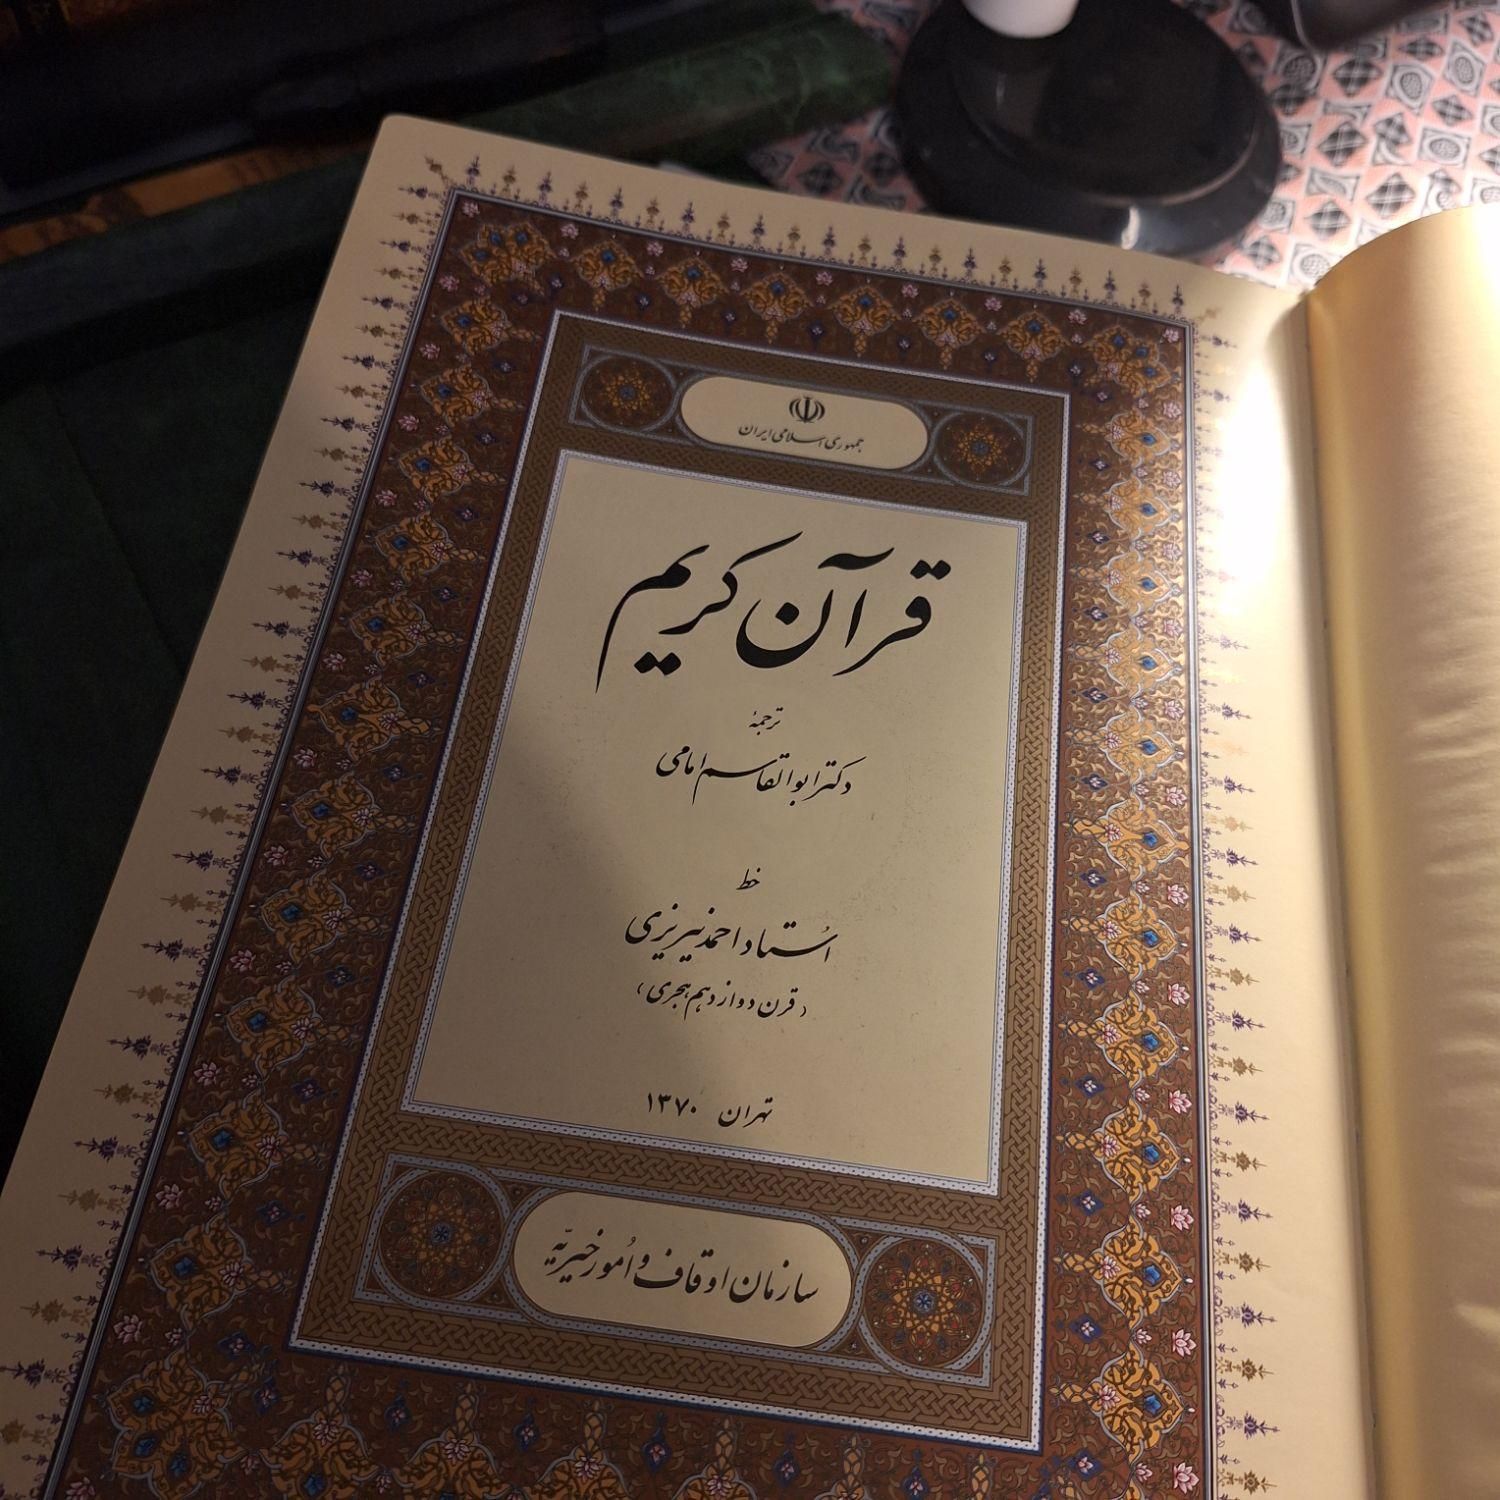 جمهوری اسلامی ایران
قرآن کریم
ترجمهٔ
دکتر ابوالقاسم امامی
خط
اُستاد احمد نیریزی
(قرن دوازدهم هجری)
تهران ۱۳۷۰
سازمان اوقاف و اُمور خیریّه